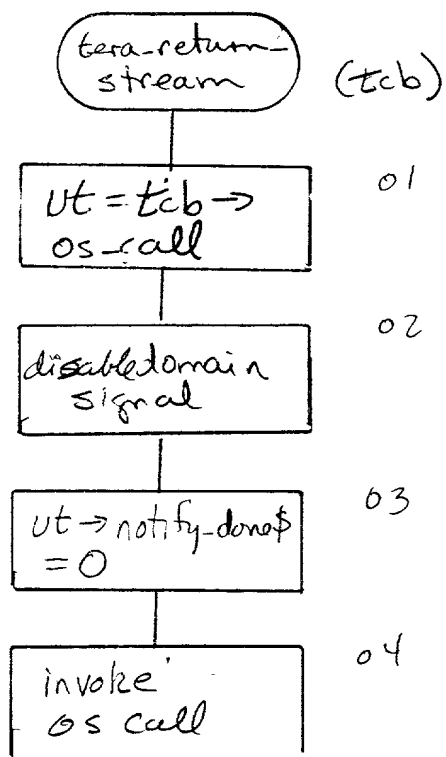 tera_return_
stream
(tcb)
01
ut = tcb →
os_call
02
disable domain
signal
03
ut → notify_done$
= 0
04
invoke
os call